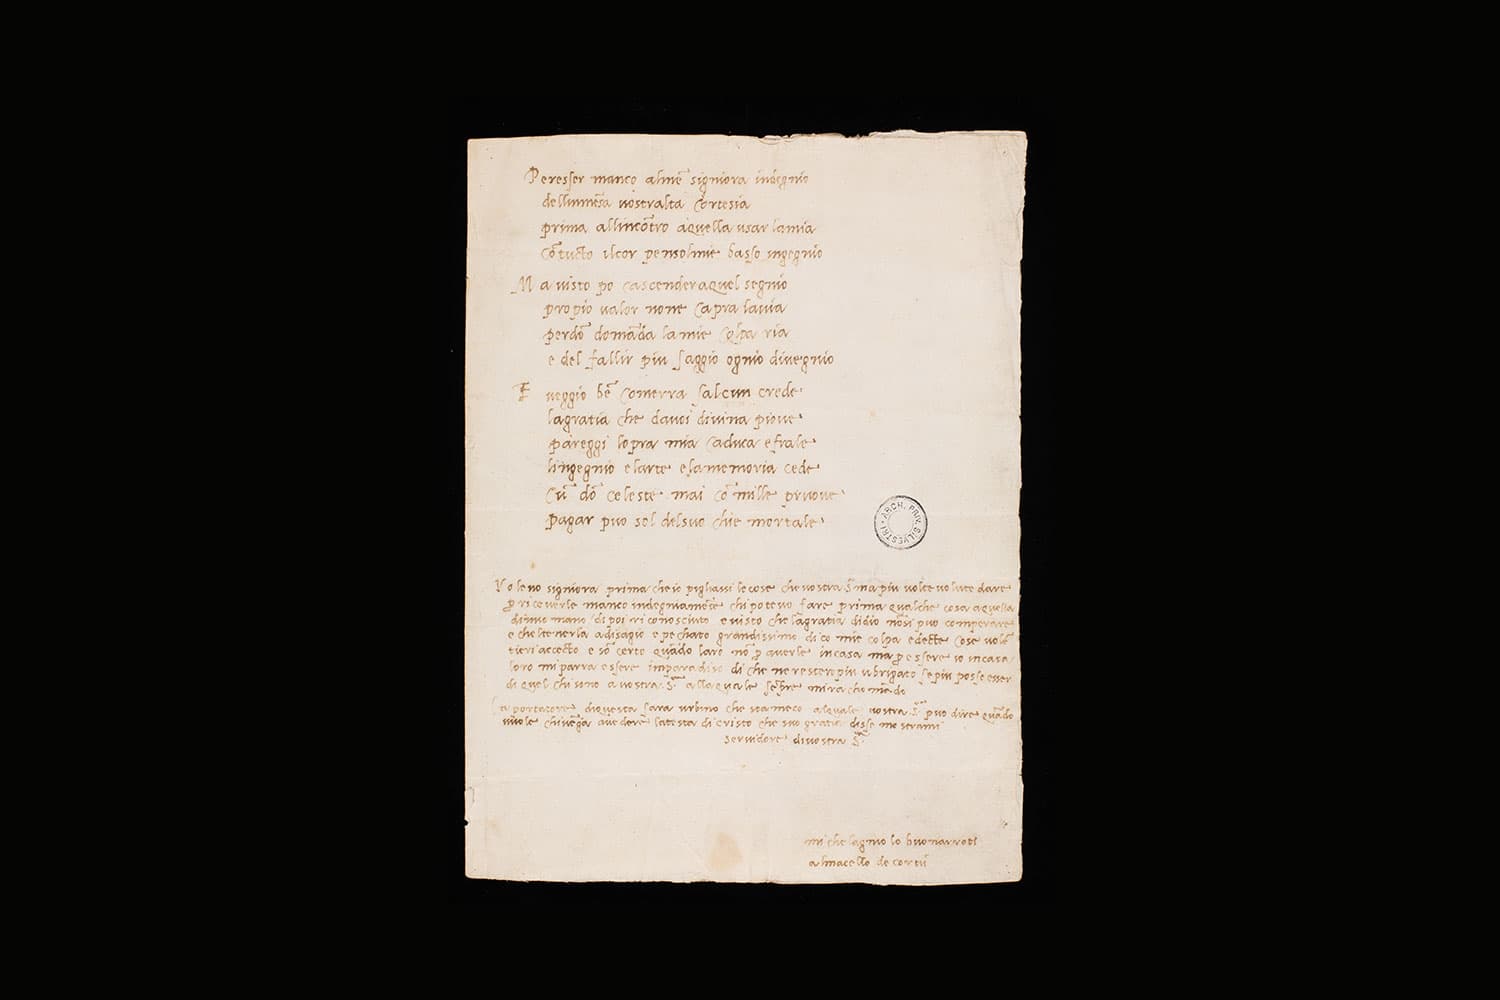 Per esser manco almē signiora indegnio
dellinmēsa vostralta cortesia
prima allincōtro aquella usar lamia
cō tucto ilcor pensolmie basso ingegnio
Ma visto po cascender aquel segnio
propio valor none capra lavia
perdō domāda la mie colpa ria
e del fallir piu saggio ognio divegnio
E veggio bē comerra salcun crede
lagratia che davoi divina piove
pareggi lopra mia caduca e frale
lingegnio elarte elamemoria cede
cū dō celeste mai cō mille pruove
pagar puo sol delsuo chie mortale
ARCH. PRIV. SILVESTRI
Voleno signiora prima cheio pigliassi lecose che vostra S. ma piu volte volute dare
p riceverle manco indegniamēte chi potevo fare prima qualche cosa aquella
dimie mano di poi riconosciuto e visto che lagratia didio nōsi puo comperare
e chel tenerla adisagio e pechato grandissimo dico mie colpa e decte cose volē
tieri accecto e sō certo quādo laro nō p averle incasa ma p essere io incasa
loro mi parra essere imparadiso di che ne resterò piu ubrigato se piu posso esser
di quel chi sono avostra S. allaquale sēpre mi rachomādo
La portatore di questa sara urbino che sta meco alquale vostra S. puo dire quādo
vuole chi vēga avedere latesta di cristo che suo gratia disse mostrarmi
servidore divostra S.
michelagniolo buonarroti
almacello de corvi